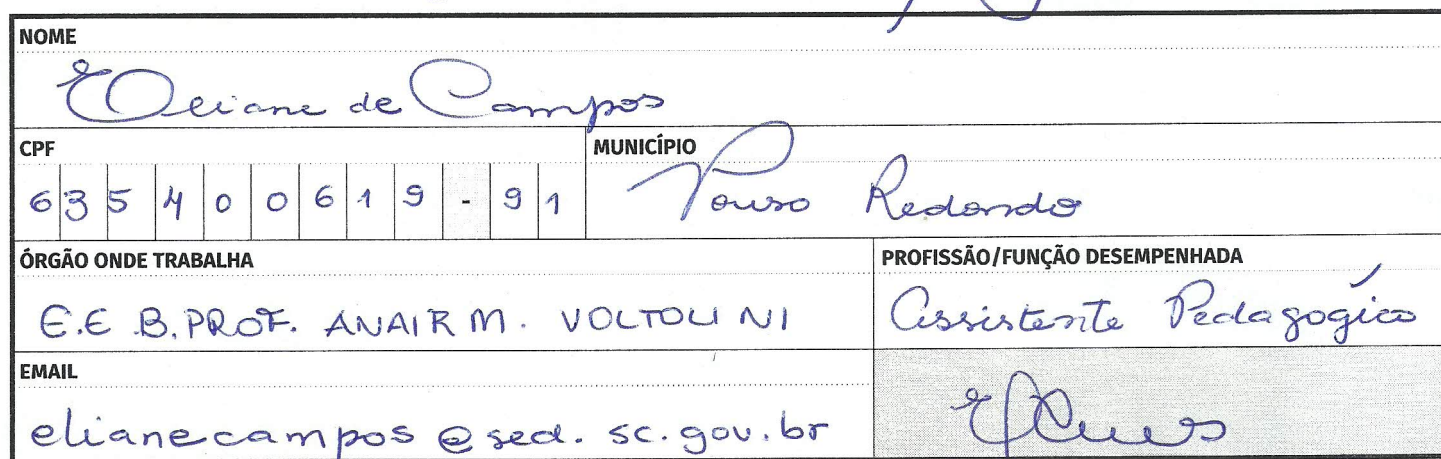 NOME
Eliane de Campos
CPF
635400619-91
MUNICÍPIO
Pouso Redondo
ÓRGÃO ONDE TRABALHA
E.E.B. PROF. ANAIR M. VOLTOLINI
PROFISSÃO/FUNÇÃO DESEMPENHADA
Assistente Pedagógico
EMAIL
elianecampos@sed.sc.gov.br